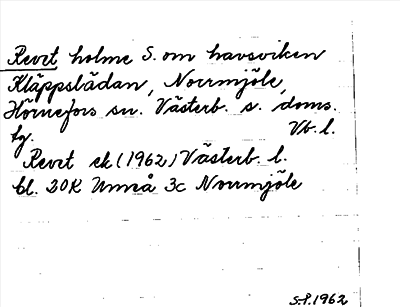 Revet holme S. om havsviken
Kläppslädan, Norrmjöle,
Hörnefors sn. Västerb. s. doms.
hg. Vb. l.
Revet ek (1962) Västerb. l.
bl. 20K Umeå 3c Norrmjöle
S.P. 1962